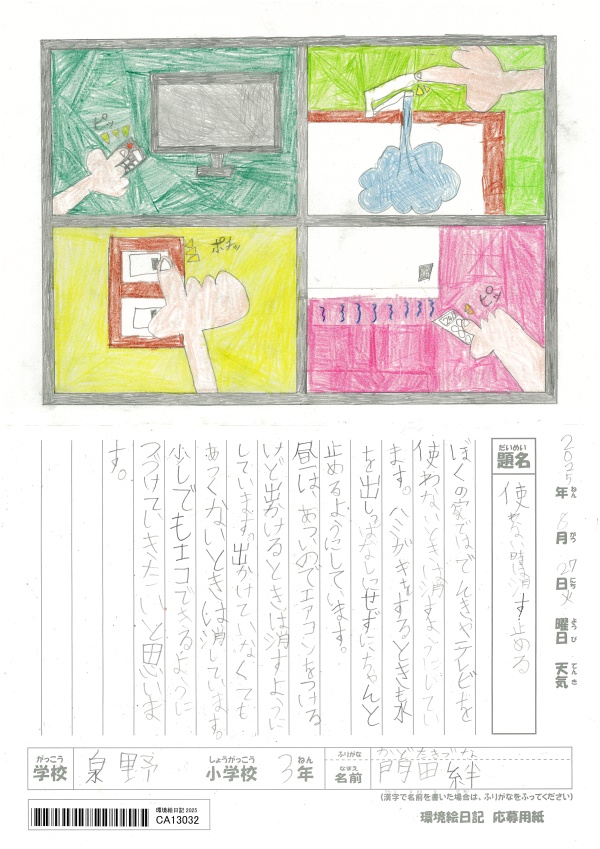 ピッ
ポチッ
ピッ
2025年 ねん
月 がつ
27日 にち
火曜日 ようび
天気 てんき
だいめい
題名
使わない時は消す止める
ぼくの家ではでんきやテレビを
使わないときは消すようにしてい
ます。ハミガキをするときも水
を出しっぱなしにせずにちゃんと
止めるようにしています。
昼は、あついのでエアコンをつける
けど出かけるときは消すように
しています。出かけていなくても
あつくないときは消しています。
少しでもエコできるように
つづけていきたいと思いま
す。
がっこう
学校
泉野
しょうがっこう
小学校
3年 ねん
ふりがな
かどたきずな
なまえ
名前
門田絆
(漢字で名前を書いた場合は、ふりがなをふってください)
環境絵日記 2025
CA13032
環境絵日記 応募用紙